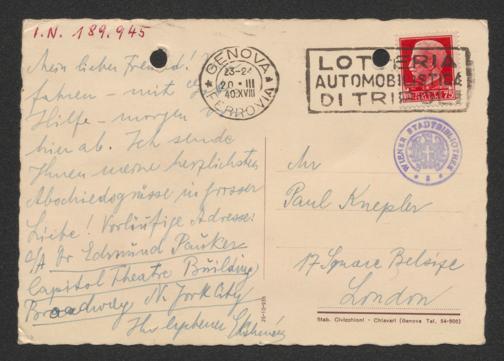 I.N. 189.945
Mein lieber Freund!
fahren - mit
Hilfe - morgen
hier ab. Ich sende
Ihnen meine herzlichsten
Abschiedsgrüsse in grosser
Liebe! Vorläufige Adresse:
Dr Edmund Pauker
Capitol Theatre Building
Broadway N. York City
Ihr
GENOVA
23-24
20 • III
40.XVIII
FERROVIA
LOTTERIA
AUTOMOBILISTICA
DI TRI
WIENER STADTBIBLIOTHEK
An
Paul Knepler
17 Square Belsize
London
Stab. Civicchioni - Chiavari (Genova Tel. 54-906)